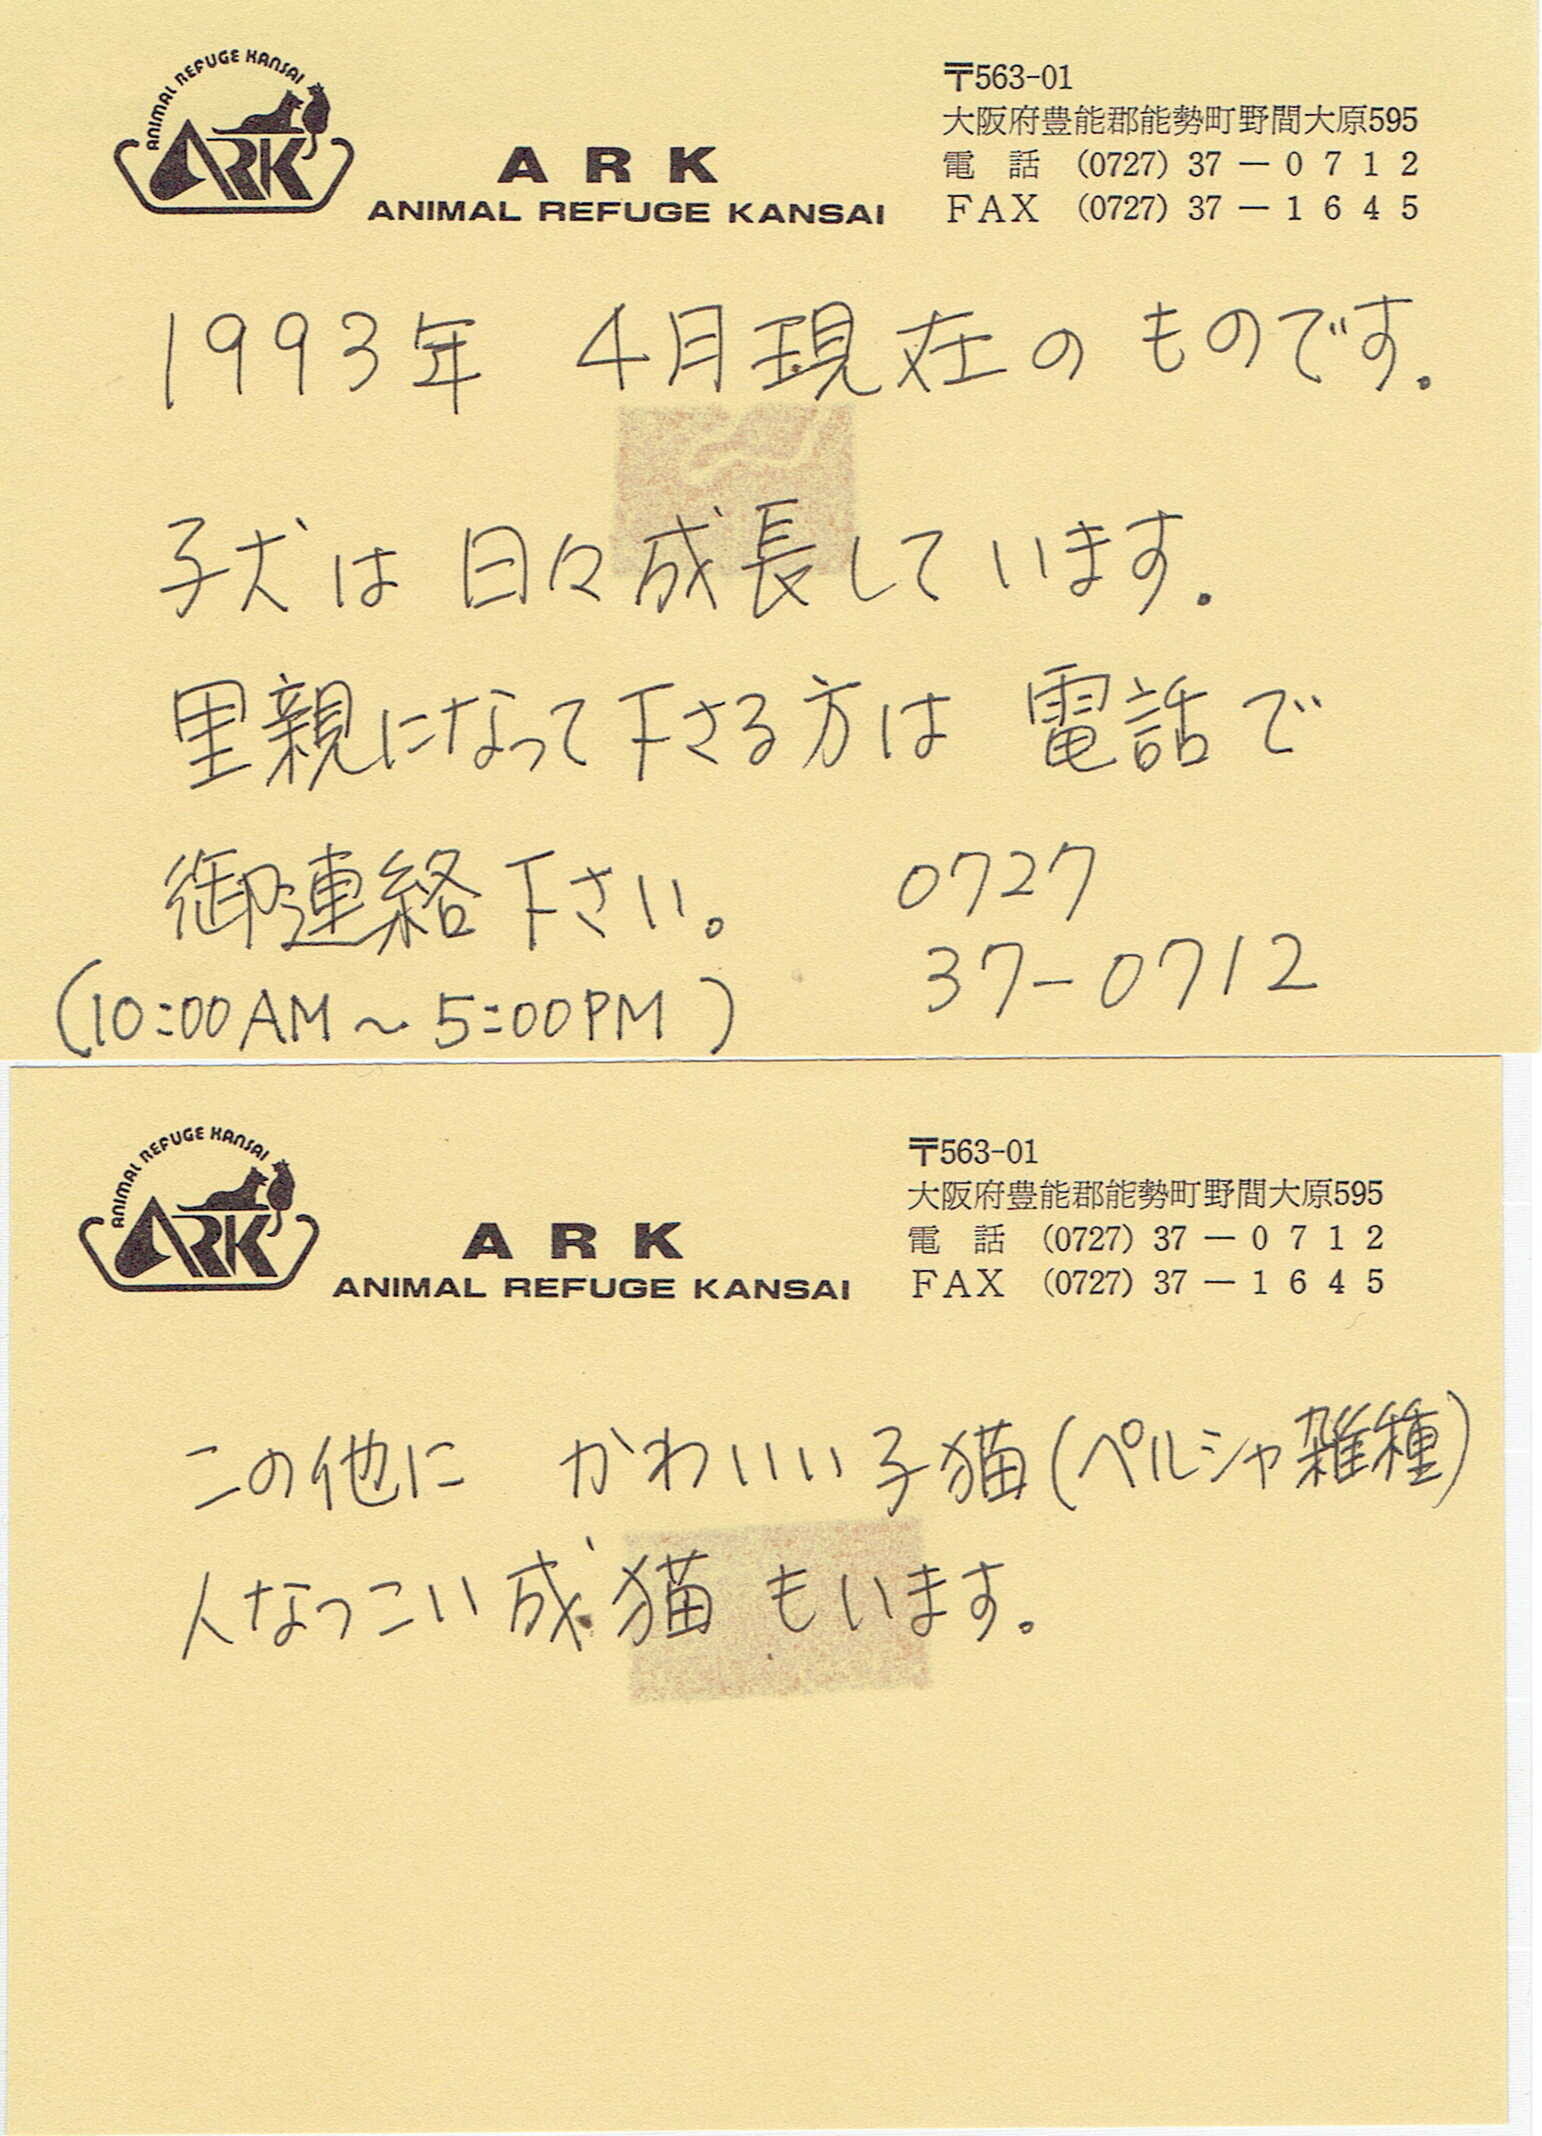 ANIMAL REFUGE KANSAI
ARK
ARK
ANIMAL REFUGE KANSAI
〒563-01
大阪府豊能郡能勢町野間大原595
電話 (0727) 37－0712
FAX (0727) 37－1645
1993年 4月現在のものです.
子犬は日々成長しています.
里親になって下さる方は 電話で
御連絡下さい。 0727
37-0712
(10:00AM～5:00PM)
ANIMAL REFUGE KANSAI
ARK
ARK
ANIMAL REFUGE KANSAI
〒563-01
大阪府豊能郡能勢町野間大原595
電話 (0727) 37－0712
FAX (0727) 37－1645
この他に かわいい子猫(ペルシャ雑種)
人なつこい成猫もいます。